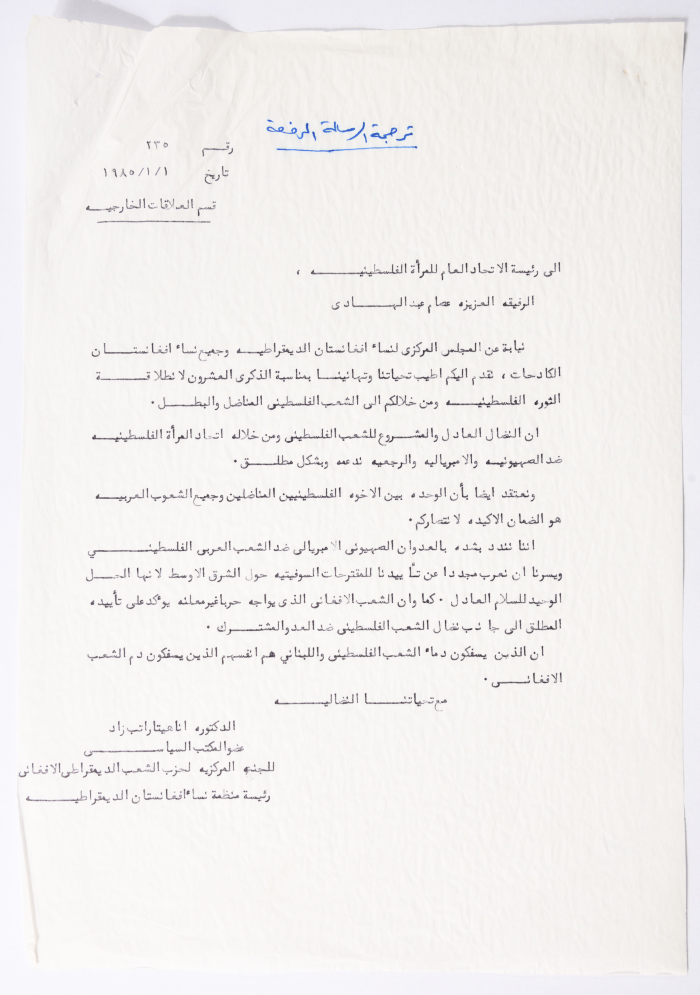 ترجمة الرسالة المرفقة
رقـــم ٢٣٥
تاريخ ١٩٨٥/١/١
قسم العلاقات الخارجيــه
الى رئيسة الاتحاد العام للمرأة الفلسطينيــــــه ،
الرفيقه العزيزه عصام عبد الهــــادى
نيابة عن المجلس المركزى لنساء افغانستان الديمقراطيــه وجميع نساء افغانستــــان
الكادحات ، نقدم اليكم اطيب تحياتنا وتهانينــا بمناسبة الذكرى العشرون لانطلاقــــة
الثوره الفلسطينيـــــه ومن خلالكم الى الشعب الفلسطينى المناضل والبطــل .
ان النضال العادل والمشــروع للشعب الفلسطينى ومن خلاله اتحاد المرأة الفلسطينيــه
ضد الصهيونيــه والامبرياليه والرجعيه ندعمه وبشكل مطلــــق .
ونعتقد ايضا بأن الوحده بين الاخوه الفلسطينيين المناضلين وجميع الشعوب العربيــه
هو الضمان الاكيده لانتصاركم .
اننا نندد بشده بالعدوان الصهيونى الامبريالى ضد الشعب العربى الفلسطينـــــي
ويسرنا ان نعرب مجددا عن تأييدنا للمقترحات السوفيتيه حول الشرق الاوسط لانها الحــل
الوحيد للسلام العادل . كما وان الشعب الافغانى الذى يواجه حربا غير معلنه يوءكد على تأييده
المطلق الى جانب نضال الشعب الفلسطينى ضد العدو المشتــرك .
ان الذين يسفكون دماء الشعب الفلسطينى واللبناني هم انفسهم الذين يسفكون دم الشعب
الافغانـــى .
مع تحياتنـــــا النضاليـــــه
الدكتوره اناهيتا راتب زاد
عضو المكتب السياســــــــى
للجنه المركزيه لحزب الشعب الديمقراطى الافغانى
رئيسة منظمة نساء افغانستان الديمقراطيـــــه